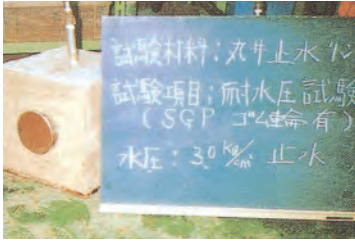 試験材料：丸井止水リン
試験項目：耐水圧試験
（SGP ゴム輪有）
水圧：3.0 kg/cm² 止水